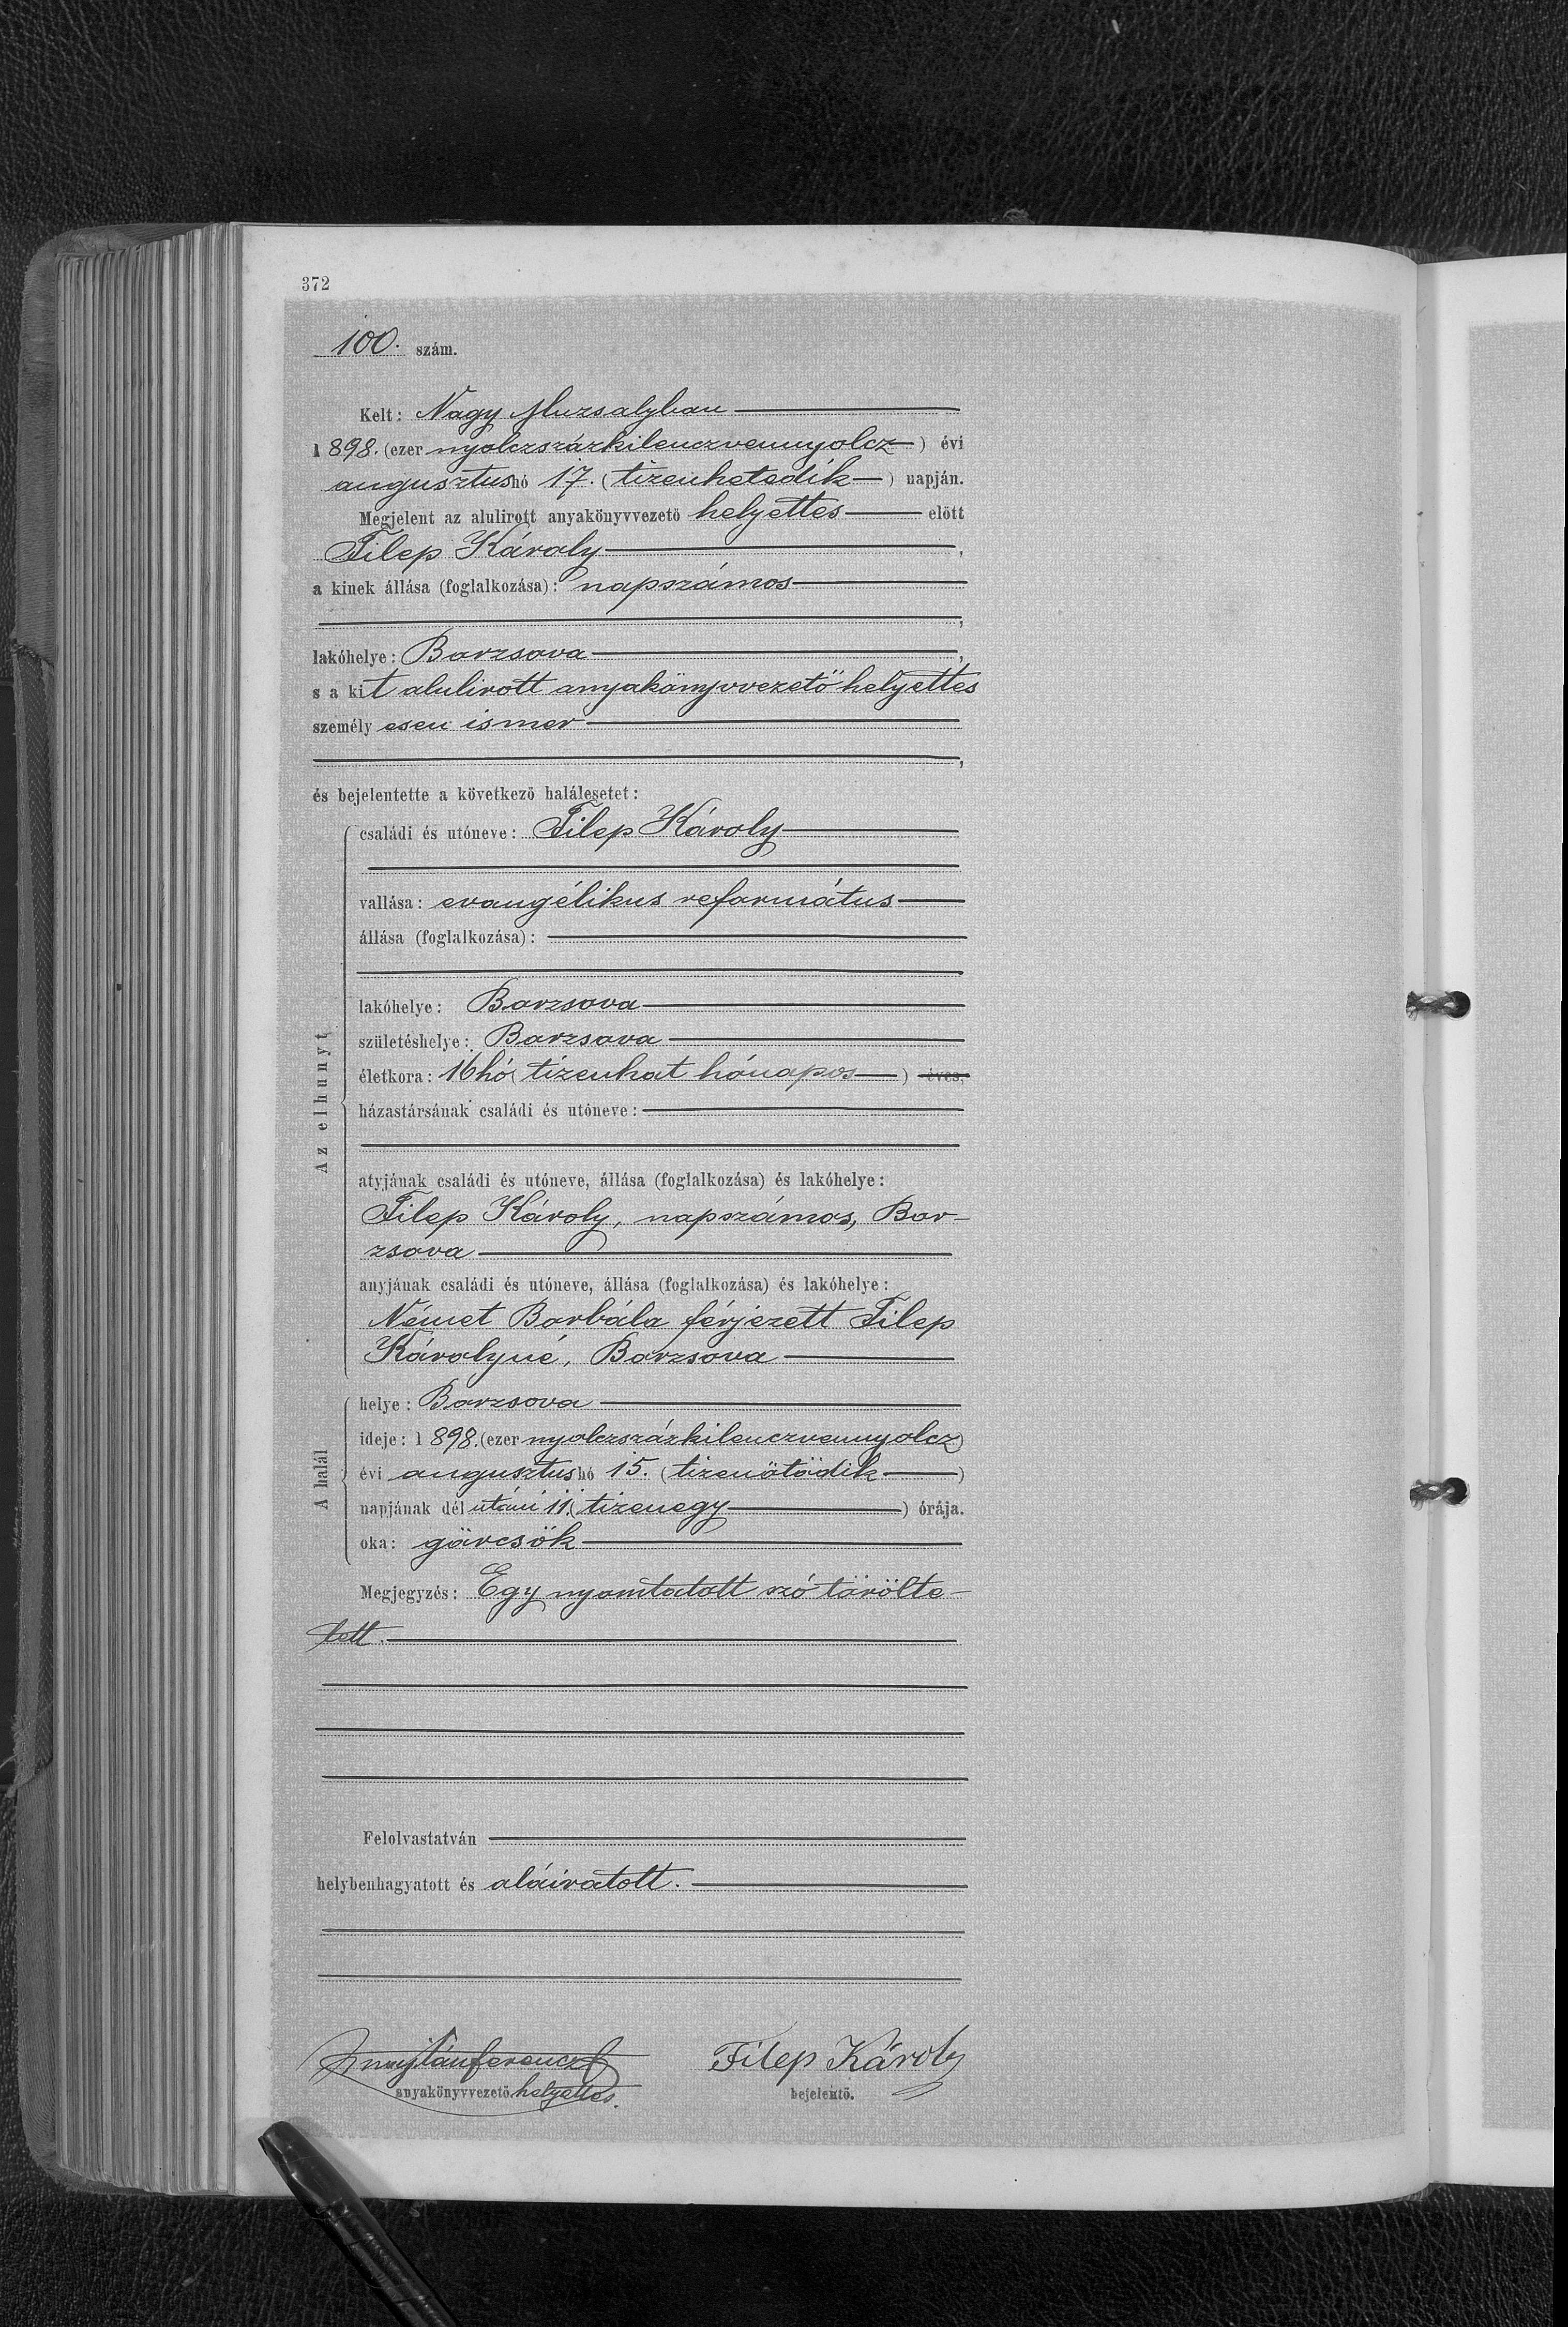 372
100. szám.
Kelt: Nagy Muzsalyban
1 898. (ezer nyolczszázkilenczvennyolcz) évi
augusztus hó 17. (tizenhetedik) napján.
Megjelent az alulirott anyakönyvvezető helyettes előtt
Filep Károly,
a kinek állása (foglalkozása): napszámos
,
lakóhelye: Borzsova,
s a kit alulirott anyakönyvvezető helyettes
személyesen ismer
,
és bejelentette a következő halálesetet:
Az elhunyt
családi és utóneve: Filep Károly
vallása: evangélikus református
állása (foglalkozása):
lakóhelye: Borzsova
születéshelye: Borzsova
életkora: 16 hó (tizenhat hónapos) éves,
házastársának családi és utóneve:
atyjának családi és utóneve, állása (foglalkozása) és lakóhelye:
Filep Károly, napszámos, Bor-
zsova
anyjának családi és utóneve, állása (foglalkozása) és lakóhelye:
Német Borbála férjezett Filep
Károlyné, Borzsova
A halál
helye: Borzsova
ideje: 1 898. (ezer nyolczszázkilenczvennyolcz)
évi augusztus hó 15. (tizenötödik)
napjának dél utáni 11. (tizenegy) órája.
oka: görcsök
Megjegyzés: Egy nyomtatott szó törölte-
tett.
Felolvastatván
helybenhagyatott és aláiratott.
Filep Károly
anyakönyvvezető helyettes.
bejelentő.